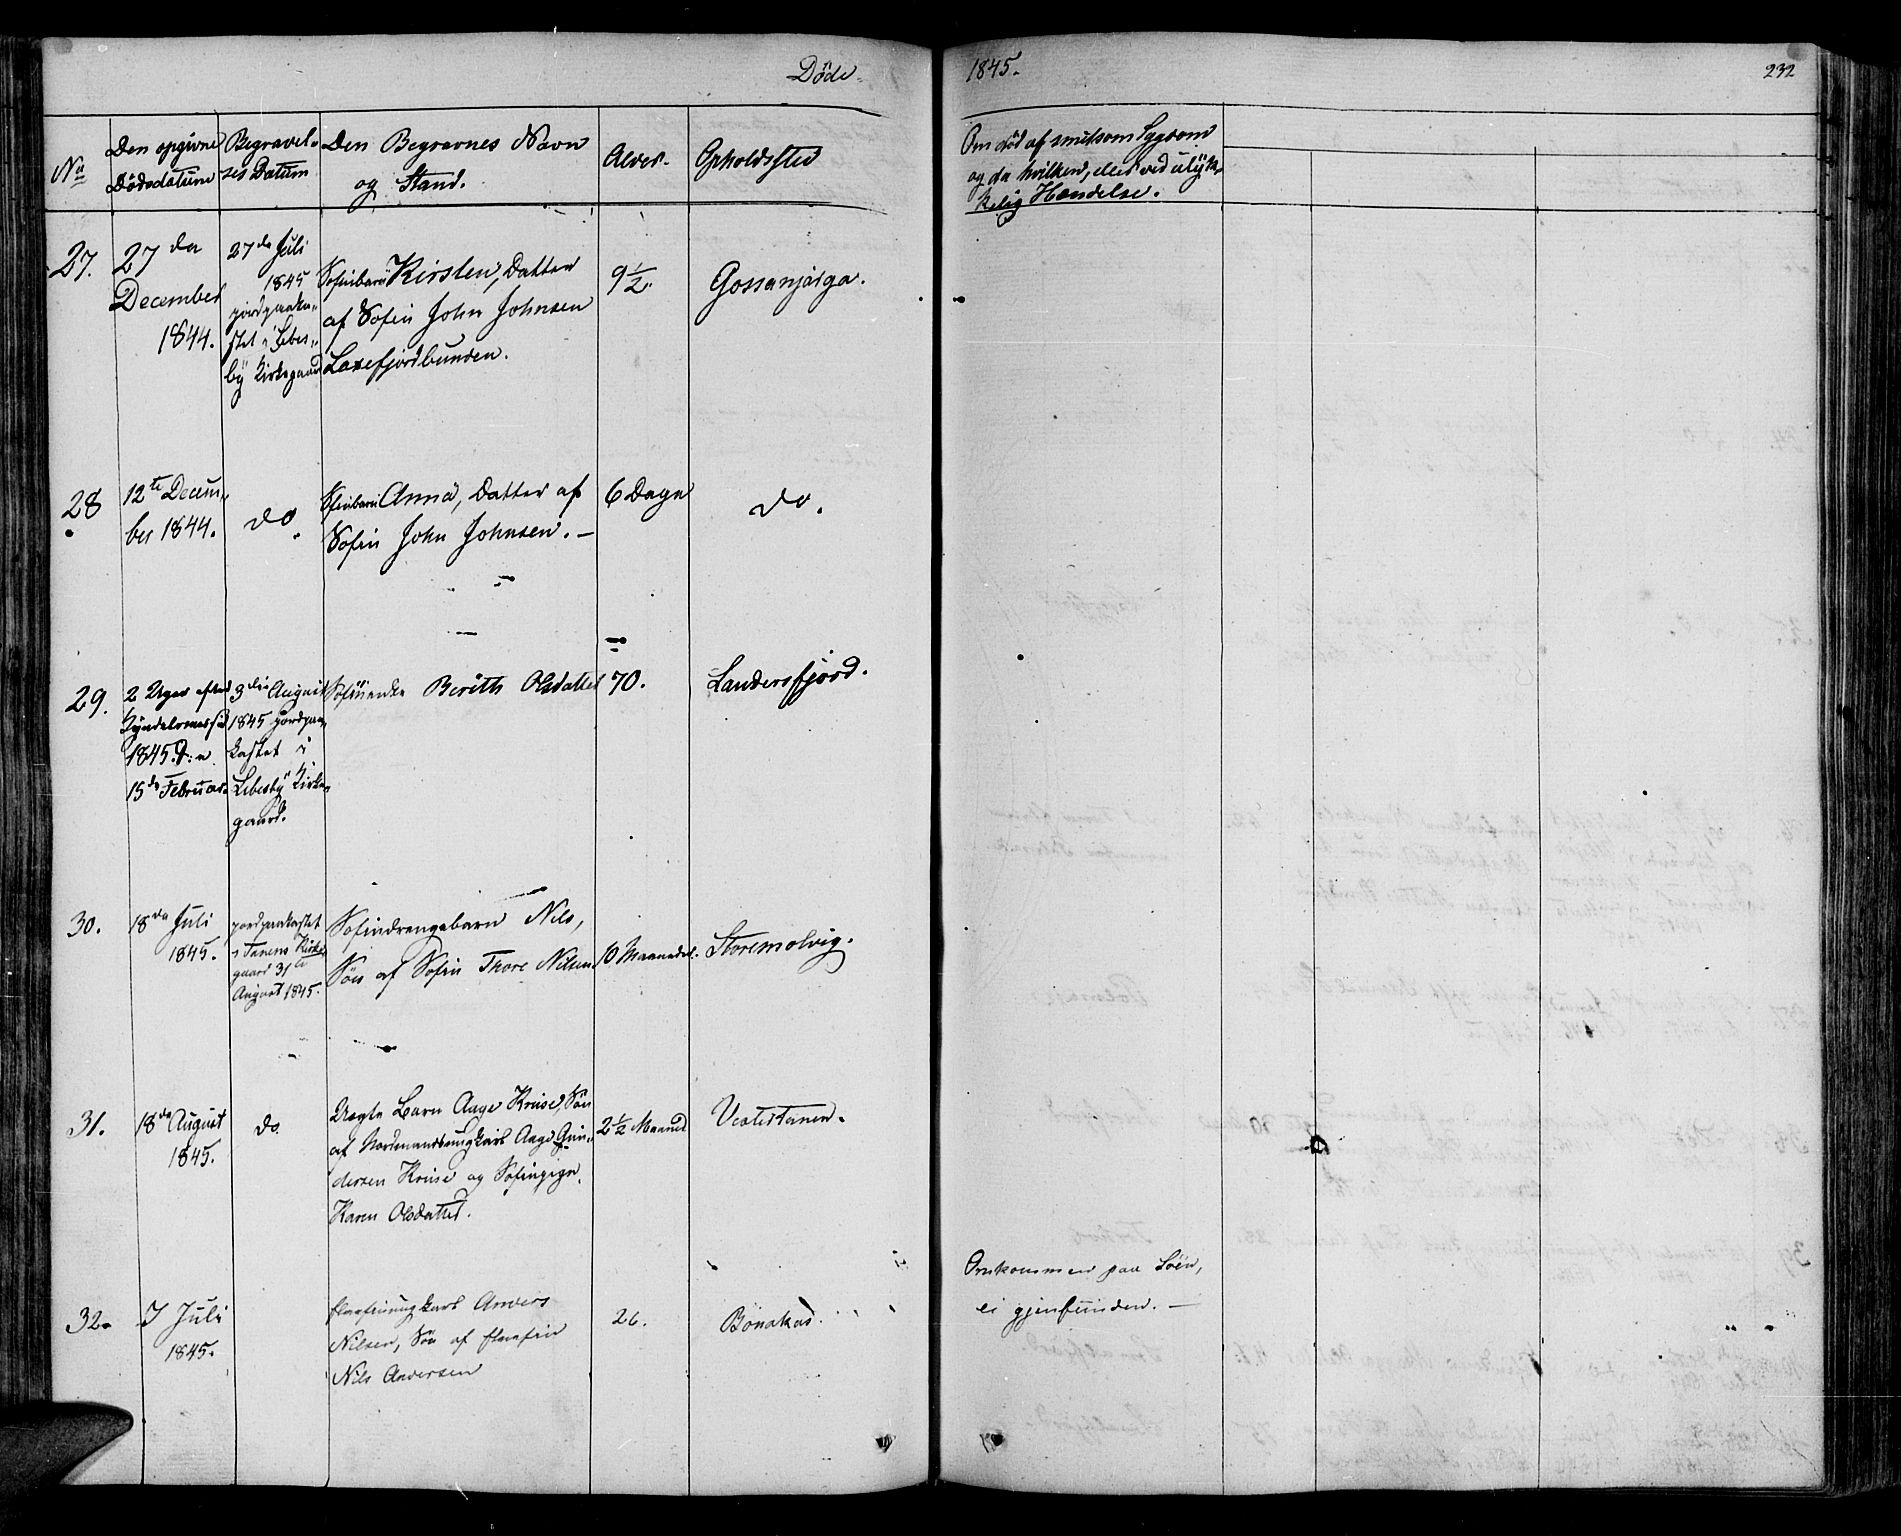 Døde
1845.
232
No
Den opgivne Dødsdatum
Begravelses Datum
Den Begravnes Navn og Stand.
Alder.
Opholdsted
Om død af smitsom Sygdom
og da hvilken, eller ved ulyk-
kelig Hændelse.
27.
27de
December
1844.
27de Juli
1845
jordpaaka-
stet i Lebes-
by Kirkegaard
Søfinbarn Kirsten, Datter
af Søfin John Johnsen
Laxefjordbunden.
9½.
Gossanjarga.
28
12te Decem-
ber 1844.
do.
Søfinbarn Anna, Datter af
Søfin John Johnsen. —
6 Dage
do.
29.
2 Uger efter
Kyndelsmesse
1845. D: e.
15de Februar.
3die August
1845 jordpaa-
kastet i
Lebesby Kirke-
gaard.
Søfinenke Berith Olsdatter
70.
Landersfjord.
30.
18de Juli
1845.
jordpaakastet
i Tanens Kirke-
gaard 31te
August 1845.
Søfindrengebarn Nils,
Søn af Søfin Thore Nilsen
10 Maaneder.
Storemolvig.
31.
18de August
1845.
do.
Uægte Barn Aage Kruse, Søn
af Nordmandsungkarl Aage Gun-
dersen Kruse og Søfinpige
Karen Olsdatter.
2½ Maaned
Vestertanen.
32.
7 Juli
1845.
Elvefinungkarl Anders
Nilsen, Søn af Elvefin
Nils Andersen
26.
Bonakas.
Omkommen paa Søen,
ei gjenfunden. —